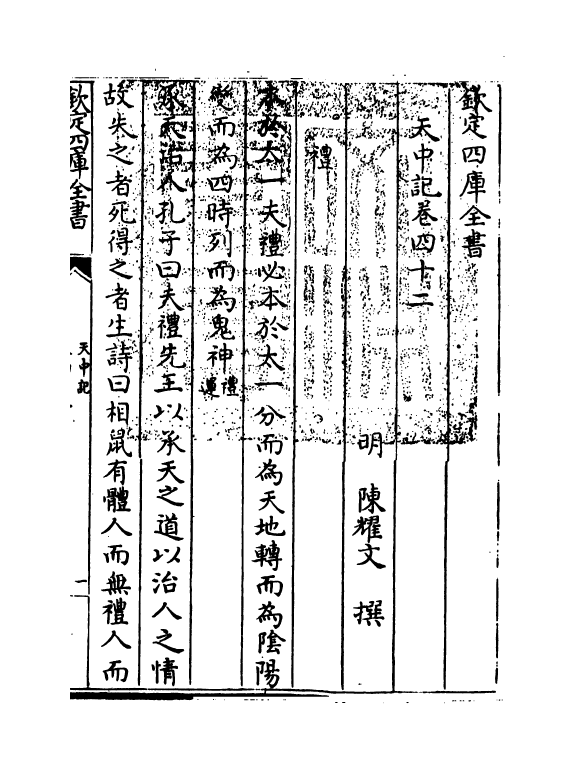 欽定四庫全書
天中記卷四十二
明 陳耀文 撰
禮
本於太一夫禮必本於太一分而為天地轉而為陰陽
變而為四時列而為鬼神禮運
承天治人孔子曰夫禮先王以承天之道以治人之情
故失之者死得之者生詩曰相鼠有體人而無禮人而
欽定四庫全書
天中記
一